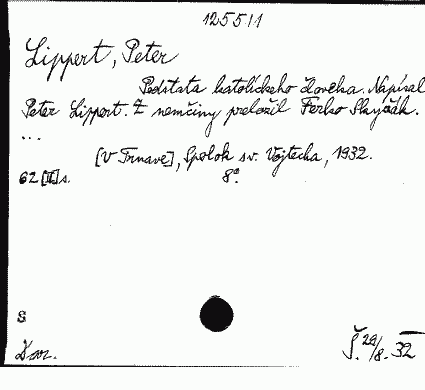 125511
Lippert, Peter
Podstata katolíckeho človeka. Napísal
Peter Lippert. Z nemčiny preložil Ferko Skyčák.
...
[V Trnave], Spolok sv. Vojtecha, 1932.
62 [II] s. 8°
S
Dar. Š. 29/8. 32